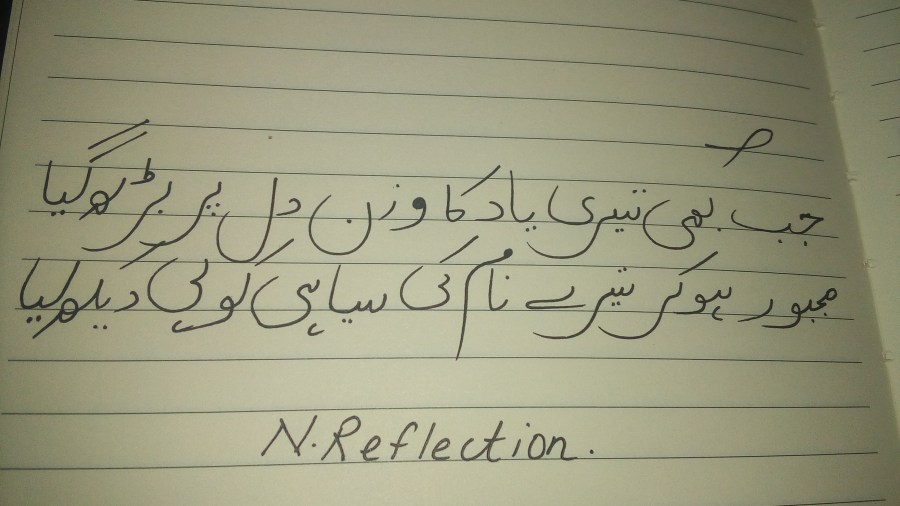 جب بھی تیری یاد کا وزن دل پر بڑھ گیا
مجبور ہوکر تیرے نام کی سیاہی کو لی دیکھ لیا
N.Reflection.